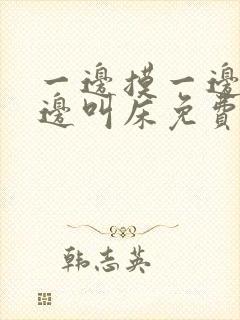 一邊摸一邊
邊叫床免費
韩志英